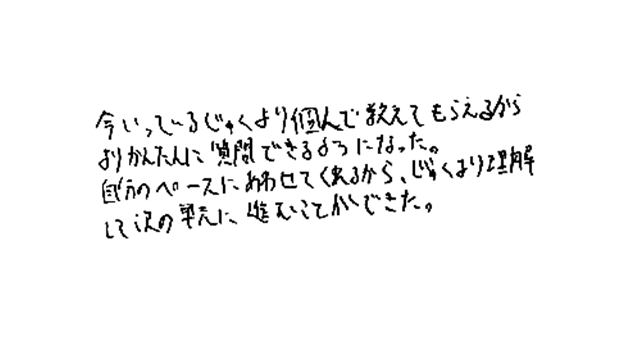 今いっているじゅくより個人で教えてもらえるから
よりかんたんに質問できるようになった。
自分のペースにあわせてくれるから、じゅくより理解
して次の単元に進むことができた。